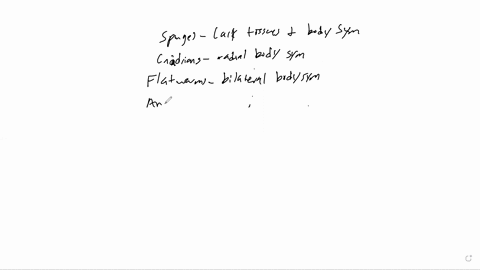 Sponges - lack tissues & body sym
Cnidrians - radial body sym
Flatworms - bilateral body sym
An